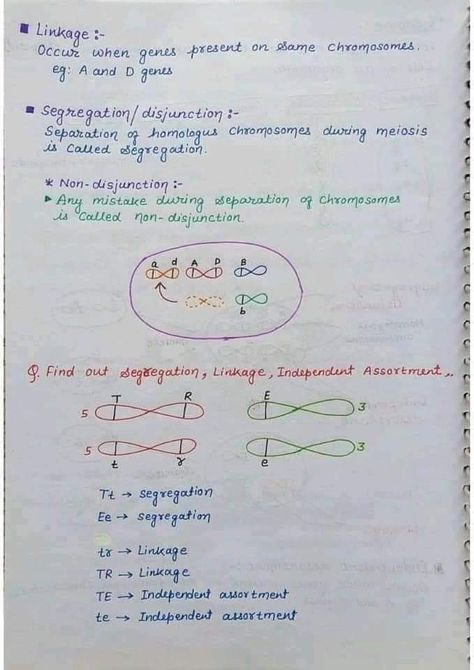 Linkage :-
Occur when genes present on same chromosomes.
eg: A and D genes
Segregation/disjunction :-
Separation of homologus chromosomes during meiosis
is called segregation.
* Non-disjunction :-
Any mistake during separation of chromosomes
is called non-disjunction.
a d A D B
b
Q. Find out segregation, Linkage, Independent Assortment,,
T R E
5 3
5 3
t r e
Tt → segregation
Ee → segregation
tr → Linkage
TR → Linkage
TE → Independent assortment
te → Independent assortment